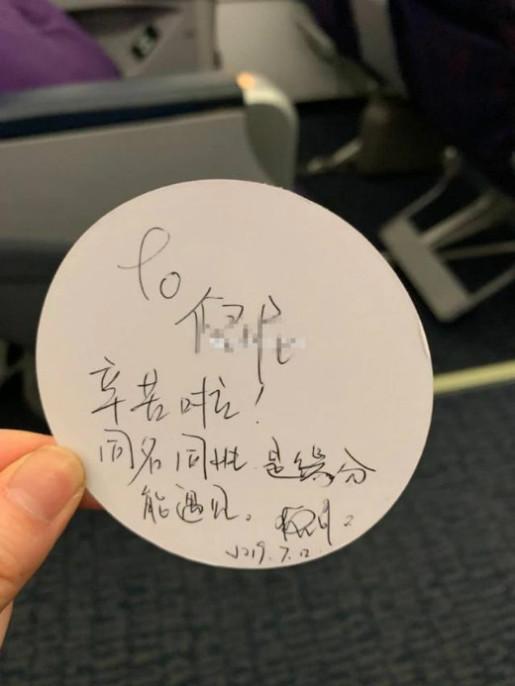 To
辛苦啦!
同名同姓 是缘分
能遇见。
2019.7.12